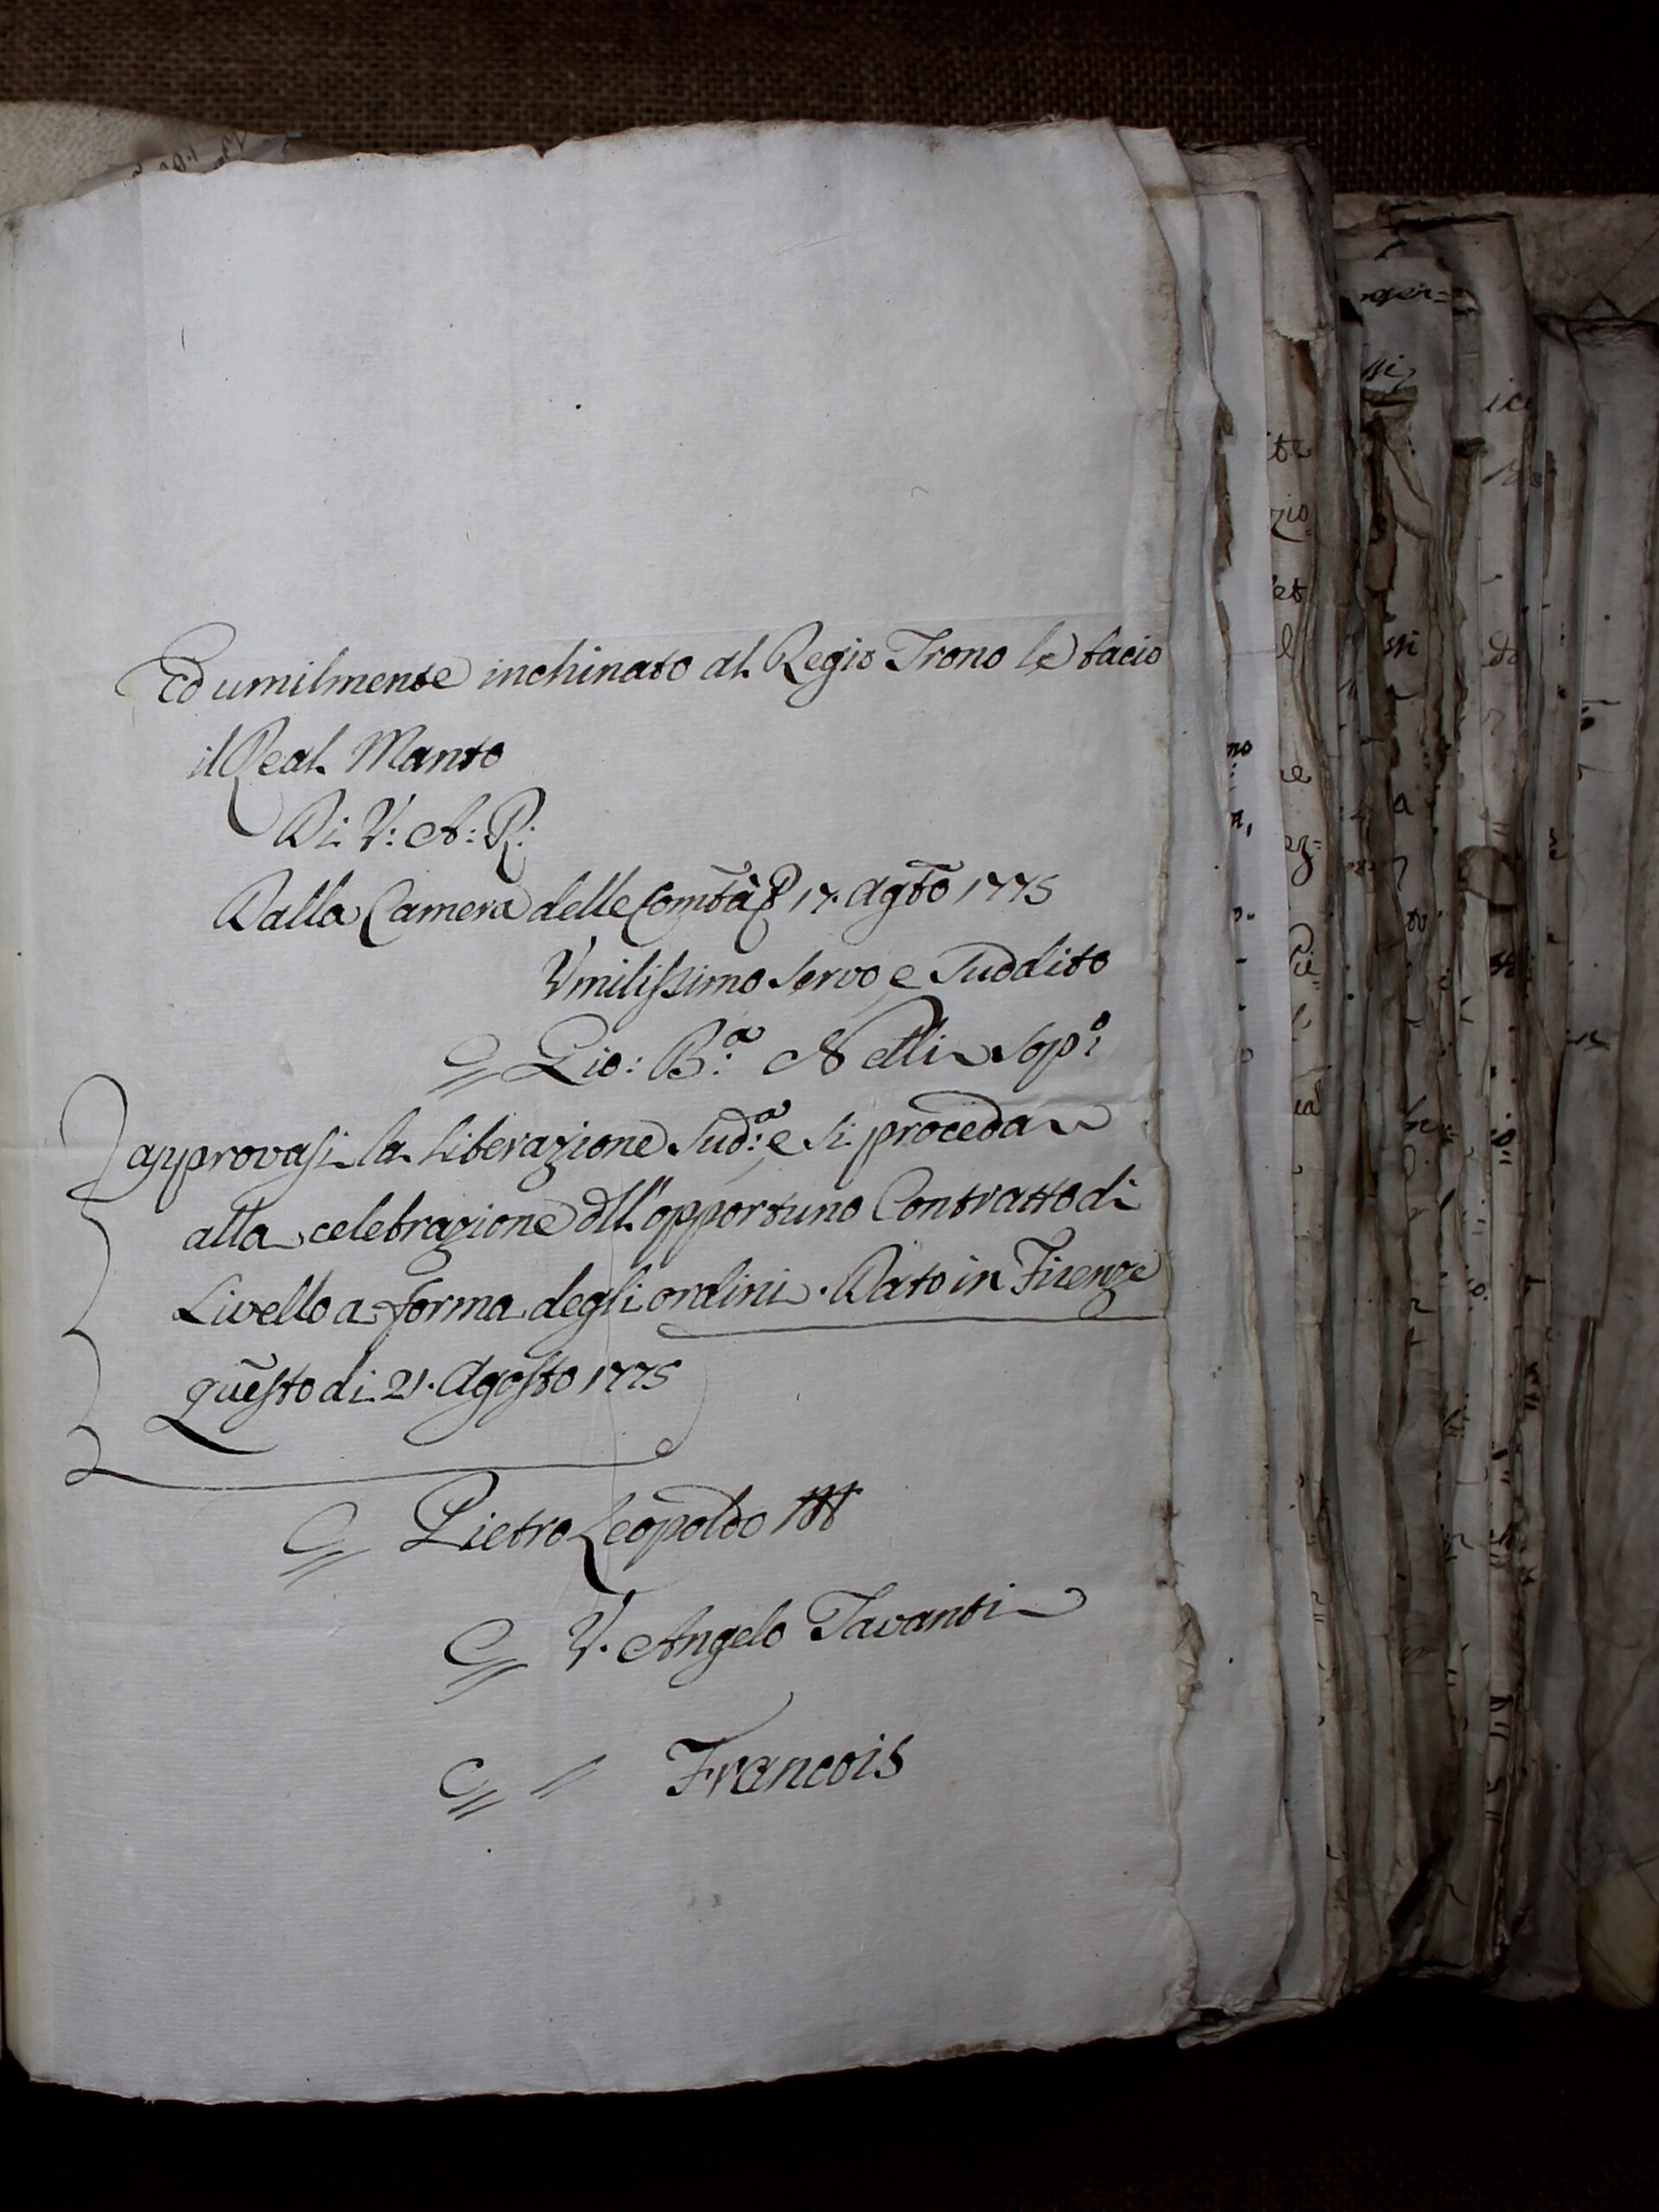 Ed umilmente inchinato al Regio Trono le bacio
il Real Manto
Di V: A: R:
Dalla Camera delle Comtà P 17. Agto 1775
Vmilissimo Servo e Suddito
Gio: Ba: Nelli Sopi
approvasi la Liberazione Suda: e si proceda
alla celebrazione dll' opportuno Contratto di
Livello a forma degli ordini. Dato in Firenze
questo di 21. Agosto 1775
Pietro Leopoldo
V. Angelo Tavanti
Francois